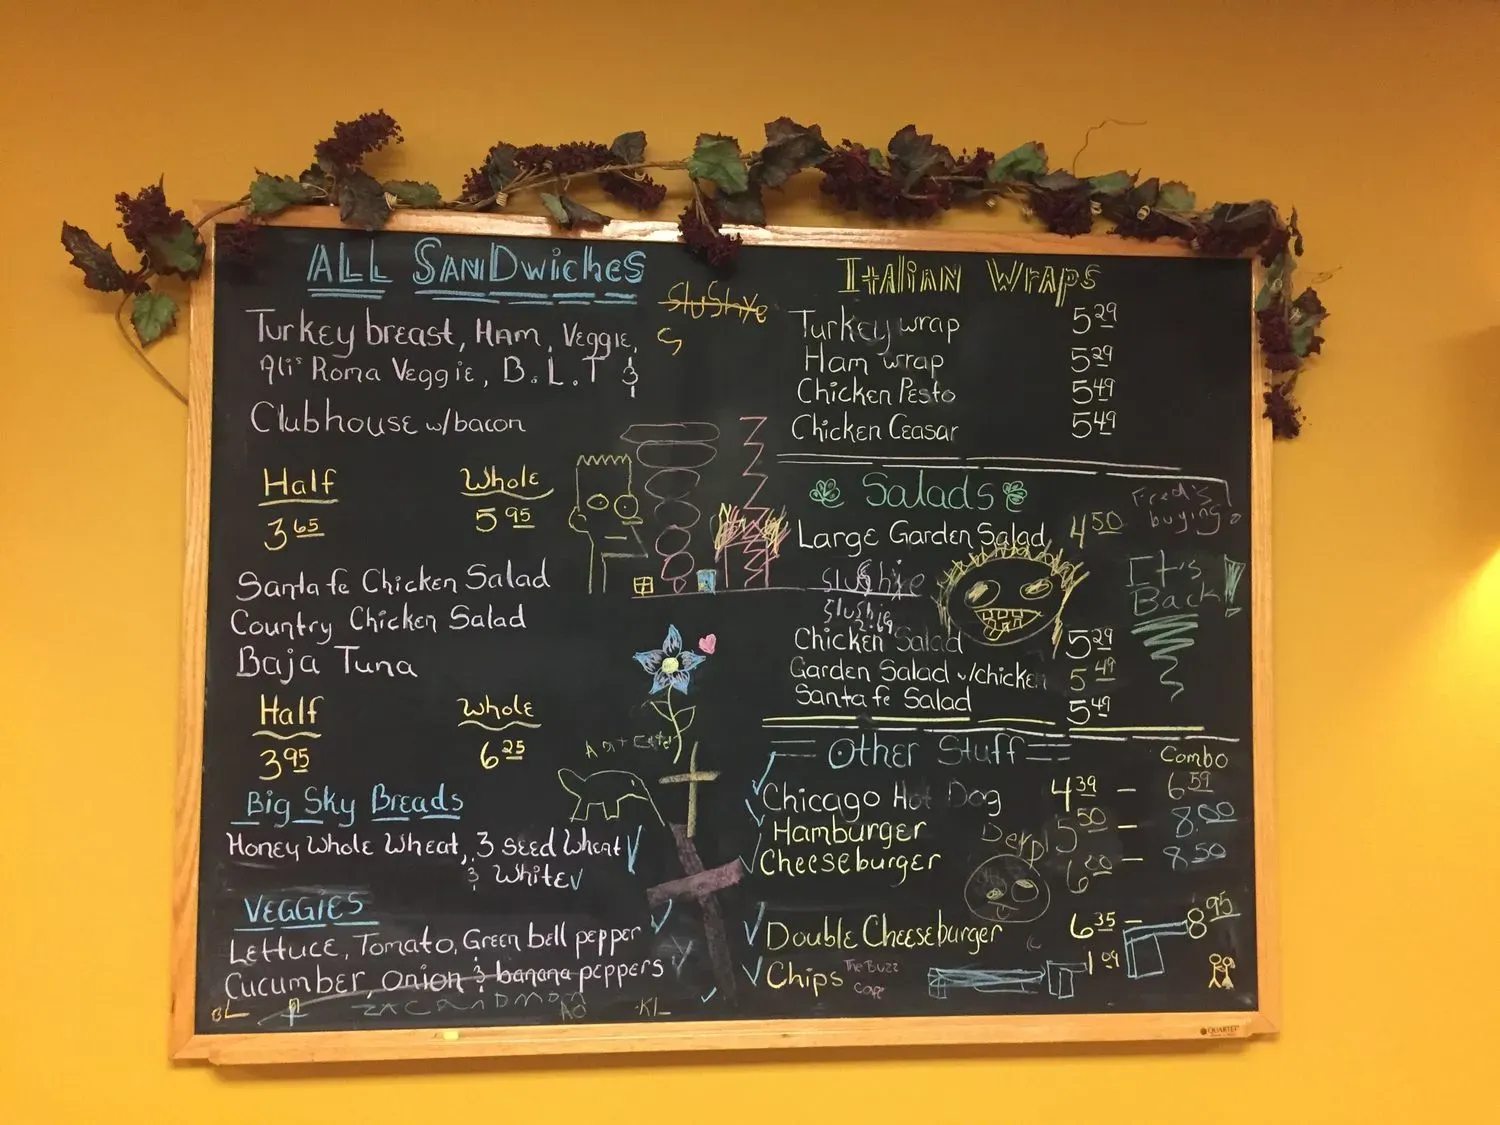 ALL SANDwiches
Turkey breast, HAM, VEGGIE,
Ali's Roma VEGGIE, B.L.T &
Clubhouse w/bacon
Half Whole
3 65 5 95
Santa fe Chicken Salad
Country Chicken Salad
Baja Tuna
Half Whole
3 95 6 25
Big Sky Breads
Honey Whole Wheat, 3 seed Wheat
& White
VEGGIES
Lettuce, Tomato, Green bell pepper
Cucumber, onion & banana peppers
BL
KL
Slushye
S
Italian Wraps
Turkey wrap 5 29
Ham wrap 5 29
Chicken Pesto 5 49
Chicken Ceasar 5 49
Salads
Large Garden Salad 4 50
Fred's
buying
It's
Back!
Slushie
Slushie
2.69
Chicken Salad 5 29
Garden Salad w/chicken 5 49
Santa fe Salad 5 49
Other Stuff
Combo
Chicago Hot Dog 4 39 – 6 59
Hamburger 5 50 – 8.00
Derp
Cheeseburger 6 00 – 8.50
Double Cheeseburger 6 35 – 8 95
Chips 1 09
The Buzz
Cafe
QUARTET